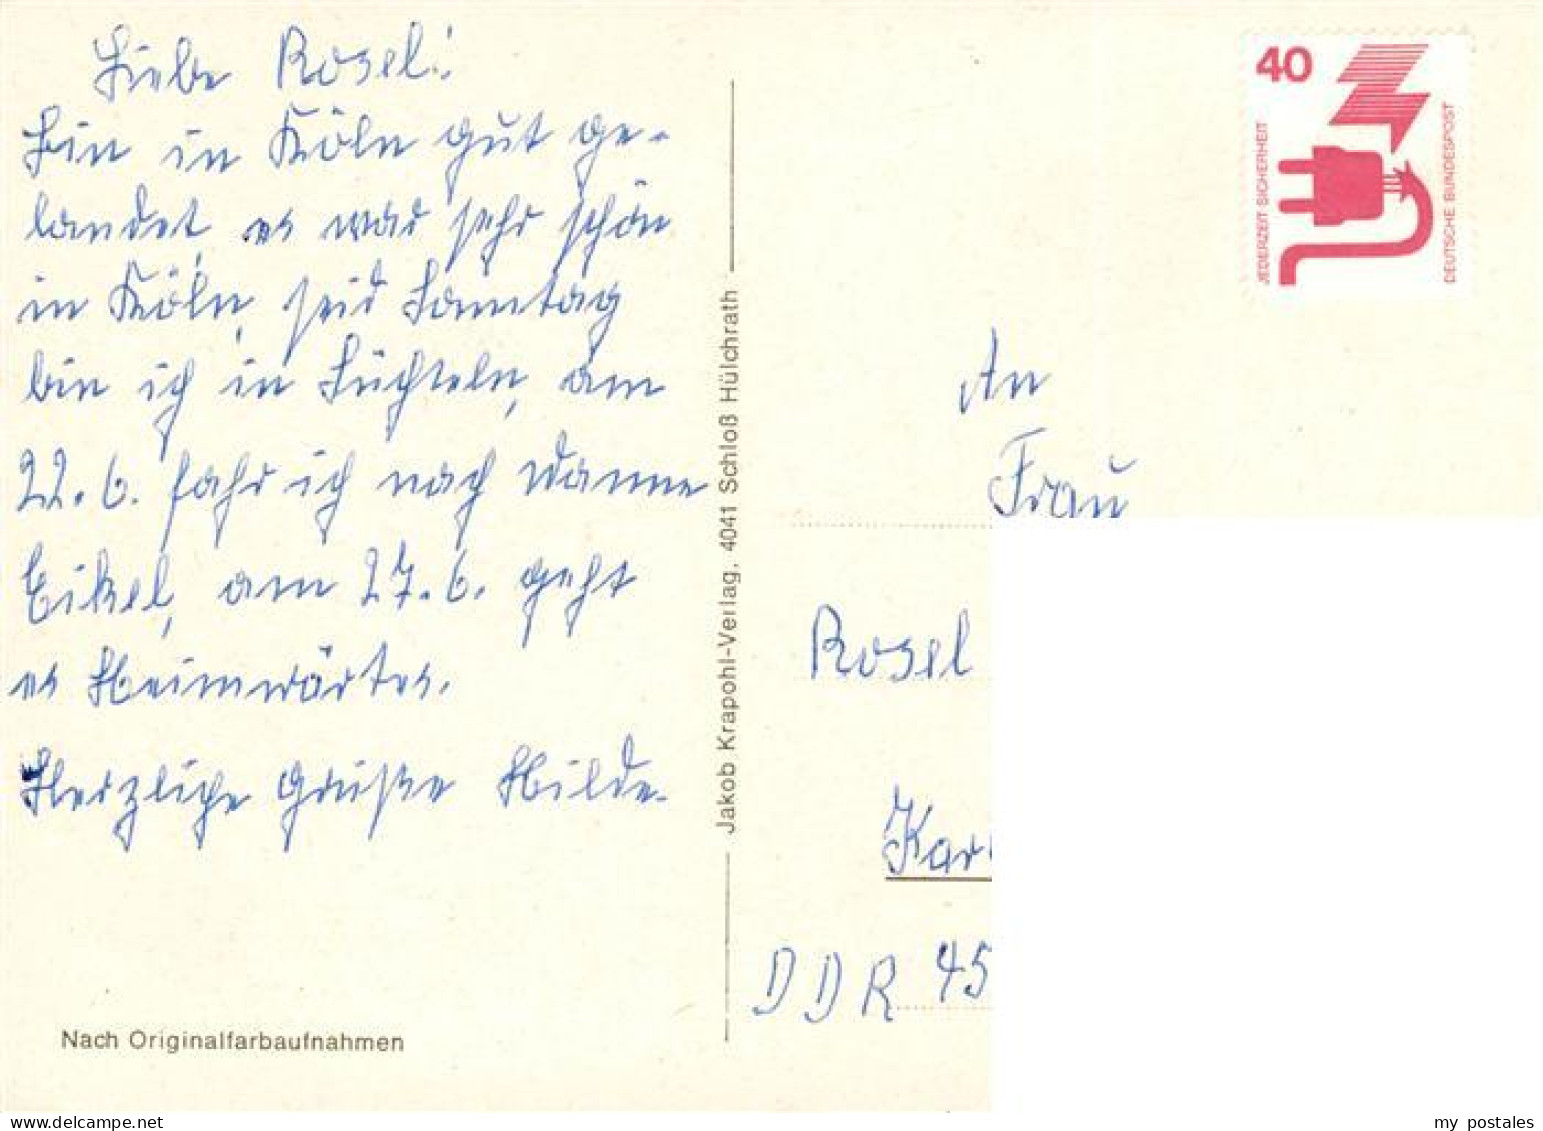 Liebe Rosel!
Bin in Köln gut ge-
landet, es war sehr schön
in Köln, seid Sonntag
bin ich in Süchteln, am
22.6. fahr ich nach Wanne
Eikel, am 27.6. geht
es Heimwärtes.
Herzliche Grüße Hilde.
Nach Originalfarbaufnahmen
Jakob Krapohl-Verlag, 4041 Schloß Hülchrath
40
JEDERZEIT SICHERHEIT
DEUTSCHE BUNDESPOST
An
Frau
Rosel
DDR 45
my postales